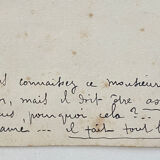 connaissez ce monsieur
, mais il doit être
, pourquoi cela ? ...
... il fait tout